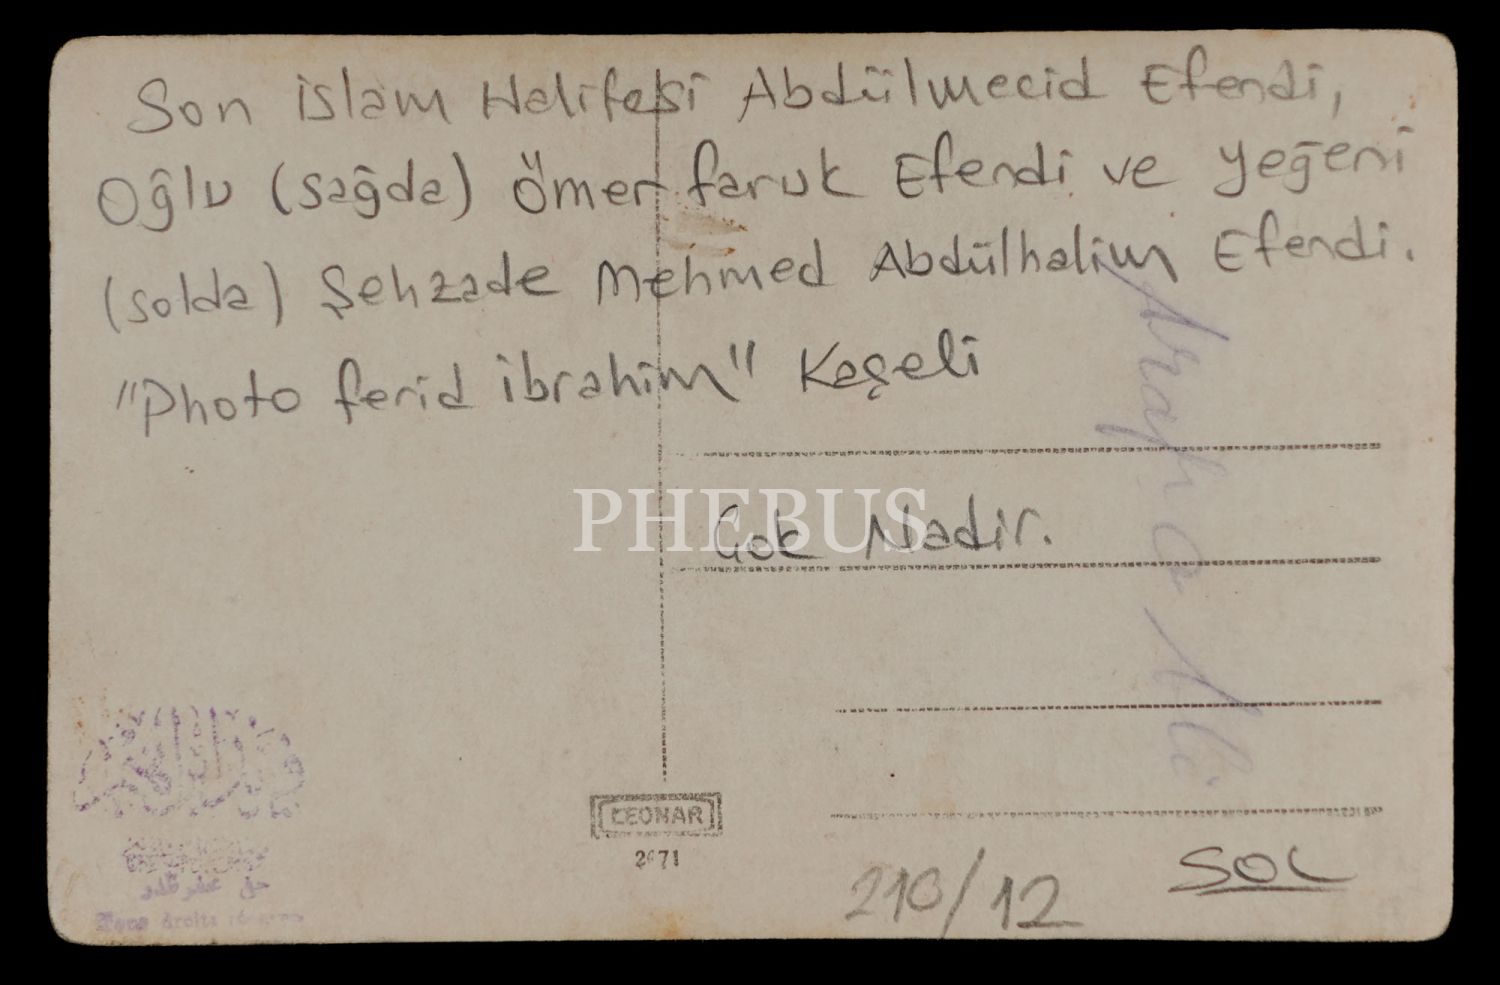 Son İslam Halifesi Abdülmecid Efendi,
Oğlu (sağda) Ömer faruk Efendi ve yeğeni
(solda) Şehzade Mehmed Abdülhalim Efendi.
"Photo ferid ibrahim" Kaşeli
PHEBUS
Çok Nadir.
LEONAR
210/12
SOL
droits